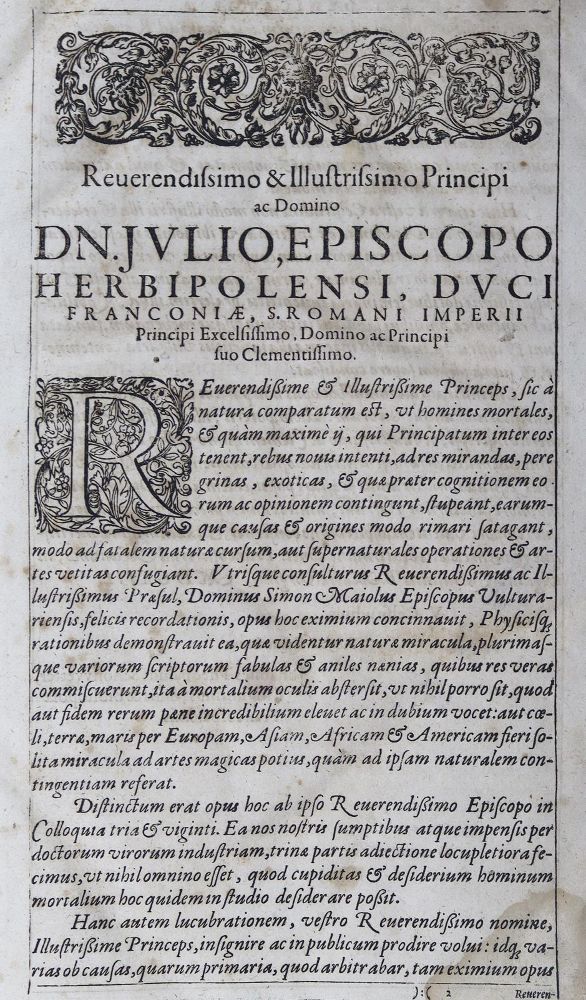 Reuerendissimo & Illustrissimo Principi
ac Domino
DN. JVLIO, EPISCOPO
HERBIPOLENSI, DVCI
FRANCONIÆ, S. ROMANI IMPERII
Principi Excelsissimo, Domino ac Principi
suo Clementissimo.
REuerendißime & Illustrißime Princeps, sic à
natura comparatum est, vt homines mortales,
& quàm maximè ij, qui Principatum inter eos
tenent, rebus nouis intenti, ad res mirandas, pere
grinas, exoticas, & quæ præter cognitionem eo-
rum ac opinionem contingunt, stupeant, earum-
que causas & origines modo rimari satagant,
modo ad fatalem naturæ cursum, aut supernaturales operationes & ar-
tes vetitas confugiant. Vtrisque consulturus Reuerendißimus ac Il-
lustrißimus Præsul, Dominus Simon Maiolus Episcopus Vultura-
riensis, felicis recordationis, opus hoc eximium concinnauit, Physicisq;
rationibus demonstrauit ea, quæ videntur naturæ miracula, plurimas-
que variorum scriptorum fabulas & aniles nænias, quibus res veras
commiscuerunt, ita à mortalium oculis abstersit, vt nihil porro sit, quod
aut fidem rerum pæne incredibilium eleuet ac in dubium vocet: aut cœ-
li, terræ, maris per Europam, Asiam, Africam & Americam fieri so-
lita miracula ad artes magicas potius, quàm ad ipsam naturalem con-
tingentiam referat.
Distinctum erat opus hoc ab ipso Reuerendißimo Episcopo in
Colloquia tria & viginti. Ea nos nostris sumptibus atque impensis per
doctorum virorum industriam, trinæ partis adiectione locupletiora fe-
cimus, vt nihil omnino esset, quod cupiditas & desiderium hominum
mortalium hoc quidem in studio desiderare poßit.
Hanc autem lucubrationem, vestro Reuerendißimo nomine,
Illustrißime Princeps, insignire ac in publicum prodire volui: idq; va-
rias ob causas, quarum primaria, quod arbitrabar, tam eximium opus
):( 2 Reueren-